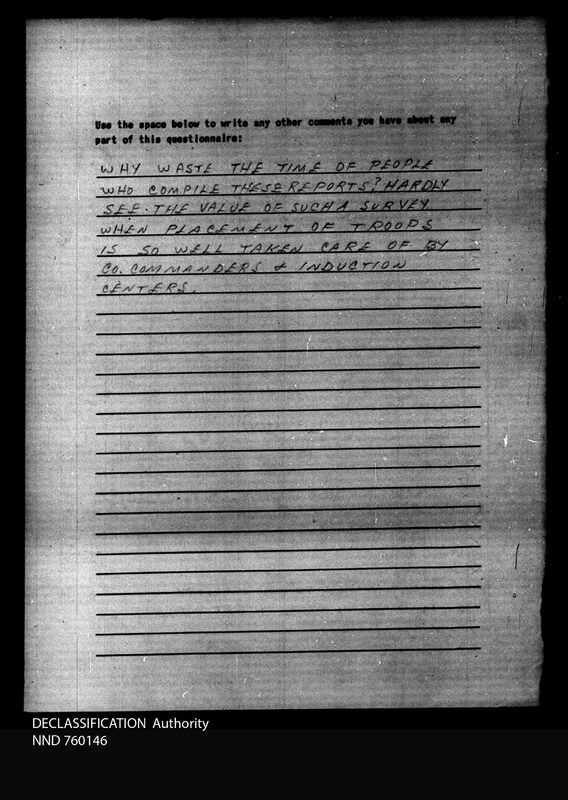 Use the space below to write any other comments you have about any
part of this questionnaire:
WHY WASTE THE TIME OF PEOPLE
WHO COMPILE THESE REPORTS? HARDLY
SEE THE VALUE OF SUCH A SURVEY
WHEN PLACEMENT OF TROOPS
IS SO WELL TAKEN CARE OF BY
CO. COMMANDERS & INDUCTION
CENTERS.
DECLASSIFICATION Authority
NND 760146